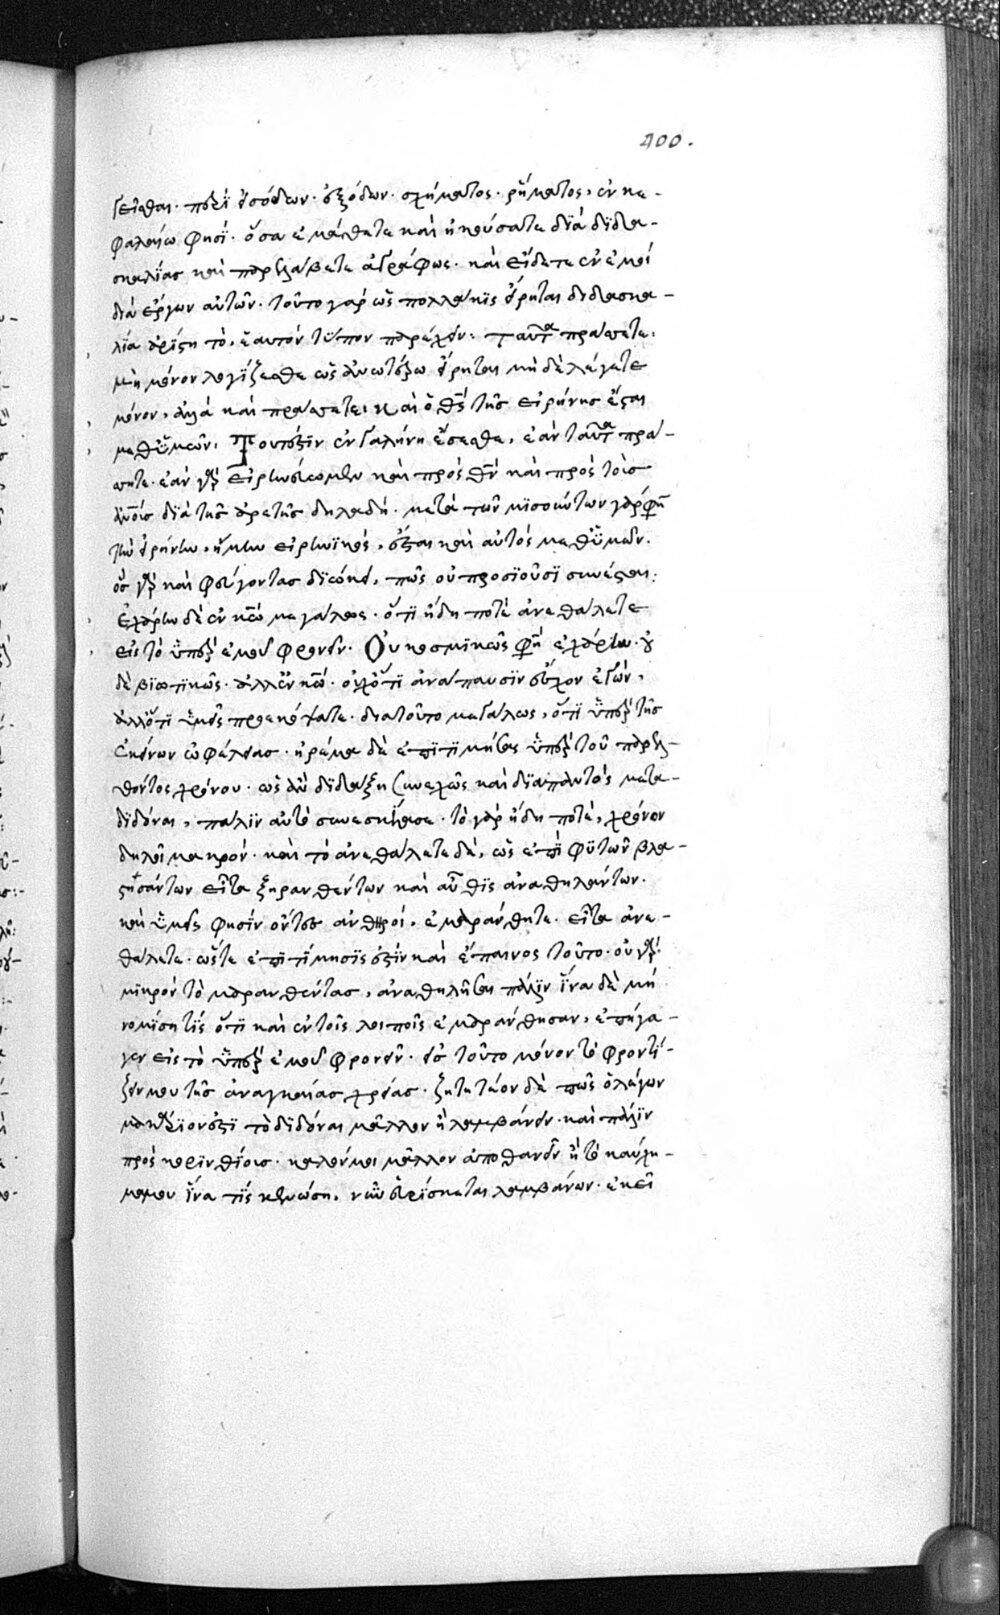 400.
γεῖσθαι· περὶ εἰσόδων· ἐξόδων· σχήματος· ῥήματος, ἐν κε-
φαλαίω φησΐ· ὅσα ἐμάθετε καὶ ἠκούσατε διὰ διδα-
σκαλίας καὶ παρελάβετε ἀγράφως· καὶ εἴδετε ἐν ἐμοὶ
διὰ ἔργων αὐτῶν· τοῦτο γὰρ ὡς πολλάκις εἴρηται διδασκα-
λία ἀρίστη τὸ, ἑαυτὸν τύπον παρέχειν· ταῦτα πράσσετε·
μὴ μόνον λογίζεσθε ὡς ἀνωτέρω εἴρηται μὴ δὲ λέγετε
μόνον, ἀλλὰ καὶ πράσσετε, καὶ ὁ θς τῆς εἰρήνης ἔσται
μεθ' ὑμῶν· Τουτέστιν ἐν γαλήνη ἔσεσθε, ἐὰν ταῦτα πρά-
σσητε· ἐὰν γὰρ εἰρηνεύσωμεν καὶ πρὸς θν καὶ πρὸς τοὺς
ἀνους διὰ τῆς ἀρετῆς δηλαδή· μετὰ τῶν μισούντων γὰρ φη
τὴν εἰρήνην, ἤμην εἰρηνικός, ἔσται καὶ αὐτὸς μεθ' ὑμῶν.
ὃς γὰρ καὶ φεύγοντας διώκει, πῶς οὐ προσιοῦσι συνέσται:
Ἐχάρην δὲ ἐν κω μεγάλως· ὅτι ἤδη ποτὲ ἀνεθάλετε
εἰς τὸ ὑπὲρ ἐμοῦ φρονεῖν. Οὐ κοσμικῶς φη ἐχάρην· οὐ
δὲ βιωτικῶς· ἀλλ' ἐν κω· οὐχ ὅτι ἀνάπαυσιν ἔσχον ἐγώ,
ἀλλ' ὅτι ὑμεῖς προεκόψατε· διατοῦτο μεγάλως, ὅτι ὑπὲρ τῆς
ἐκείνων ὠφελείας· ἠρέμα δὲ ἐπιτιμήσας ὑπὲρ τοῦ παρελ-
θόντος χρόνου· ὡς ἂν διδάξη συνεχῶς καὶ διαπαντὸς μετα-
διδόναι, πάλιν αὐτὸ συνεσκίασε· τὸ γὰρ ἤδη ποτὲ, χρόνον
δηλοῖ μακρόν· καὶ τὸ ἀνεθάλετε δὲ, ὡς ἐπὶ φυτῶν βλα-
στησάντων εἶτα ξηρανθέντων καὶ αὖθις ἀναθηλάντων.
καὶ ὑμεῖς φησὶν ὄντες ἀνθηροί, ἐμαράνθητε· εἶτα ἀνε-
θάλετε· ὥστε ἐπιτίμησίς ἐστιν καὶ ἔπαινος τοῦτο· οὐ γὰρ
μικρὸν τὸ μαρανθέντας, ἀναθηλῆσαι πάλιν ἵνα δὲ μή
νομίση τίς ὅτι καὶ ἐν τοῖς λοιποῖς ἐμαράνθησαν, ἐπήγα-
γεν εἰς τὸ ὑπὲρ ἐμοῦ φρονεῖν· εἰς τοῦτο μόνον τὸ φροντί-
ζειν μου τῆς ἀναγκαίας χρείας· ζητητέον δὲ πῶς ὁ λέγων
μακάριόν ἐστι τὸ διδόναι μᾶλλον ἢ λαμβάνειν· καὶ πάλιν
πρὸς κορινθίοις· καλόν μοι μᾶλλον ἀποθανεῖν ἢ τὸ καύχη-
μα μου ἵνα τὶς κενώση, νῦν εὑρίσκεται λαμβάνων· ἐκεῖ